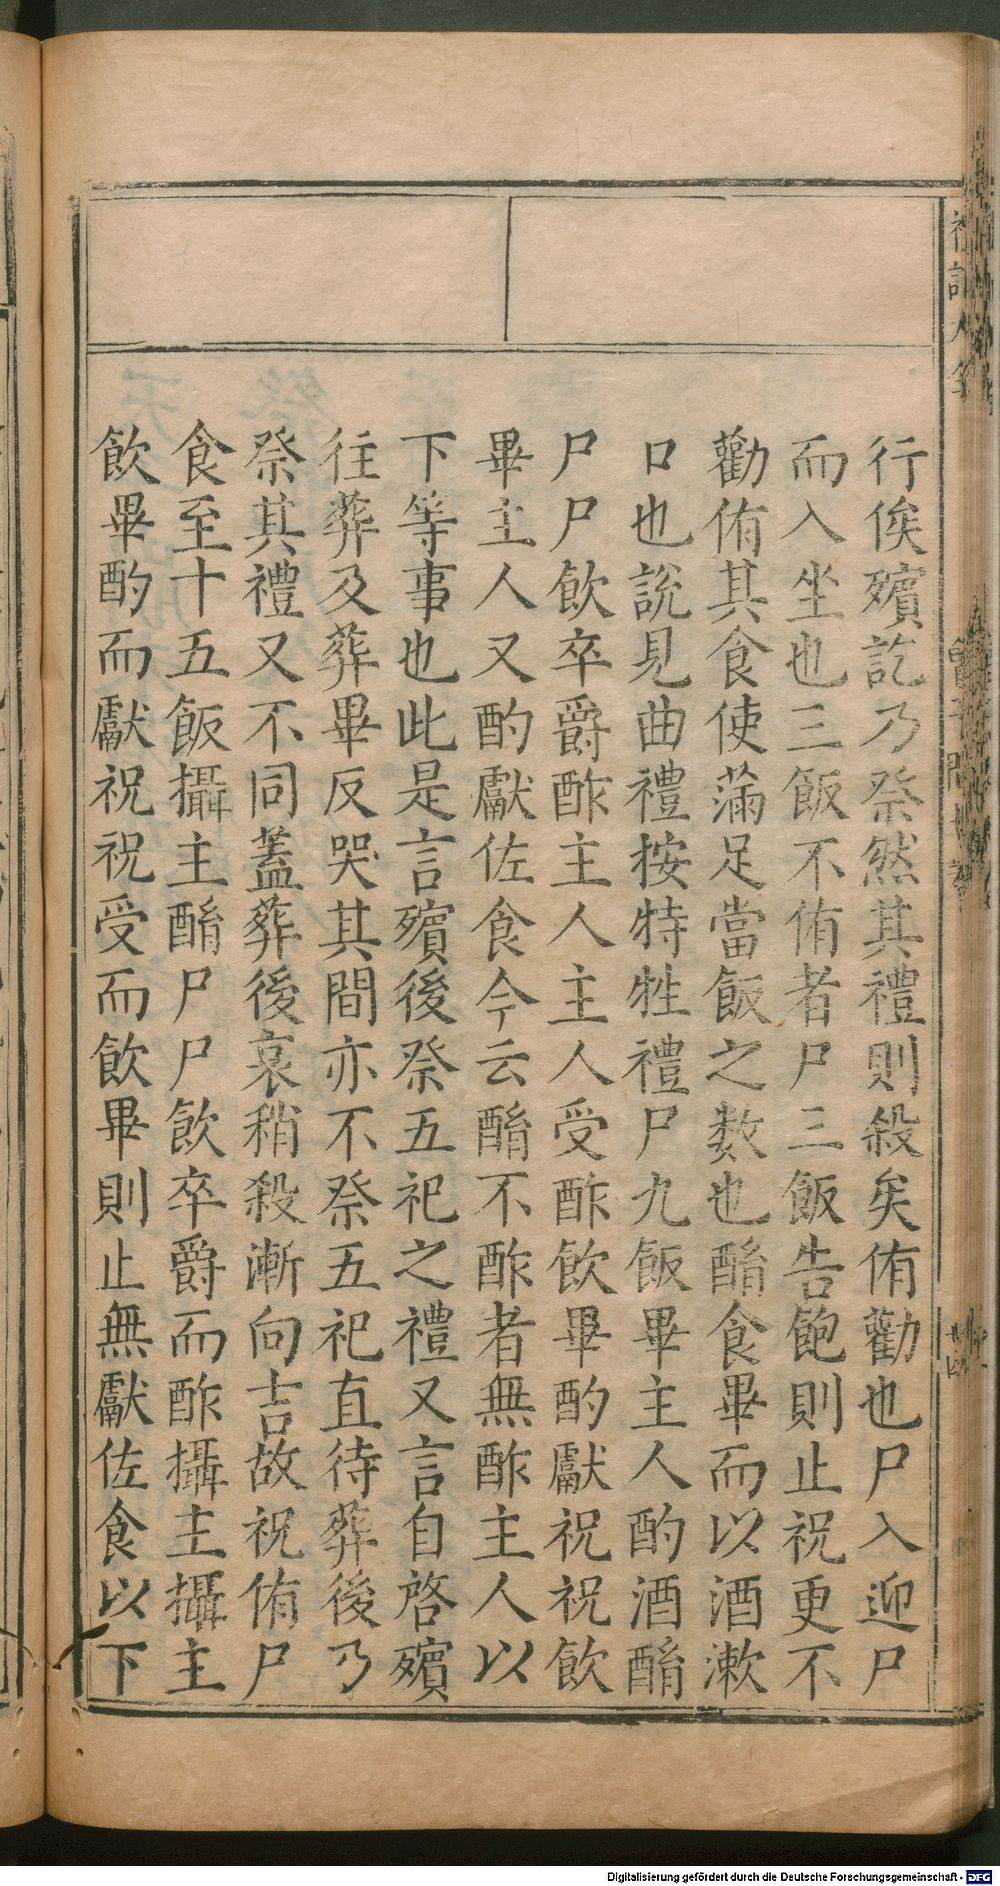 行俟殯訖乃祭然其禮則殺矣侑勸也尸入迎尸
而入坐也三飯不侑者尸三飯告飽則止祝更不
勸侑其食使滿足當飯之数也酳食畢而以酒漱
口也說見曲禮按特牲禮尸九飯畢主人酌酒酳
尸尸飲卒爵酢主人主人受酢飲畢酌獻祝祝飲
畢主人又酌獻佐食今云酳不酢者無酢主人以
下等事也此是言殯後祭五祀之禮又言自啓殯
往葬及葬畢反哭其間亦不祭五祀直待葬後乃
祭其禮又不同蓋葬後哀稍殺漸向吉故祝侑尸
食至十五飯攝主酳尸尸飲卒爵而酢攝主攝主
飲畢酌而獻祝祝受而飲畢則止無獻佐食以下
Digitalisierung gefördert durch die Deutsche Forschungsgemeinschaft - DFG